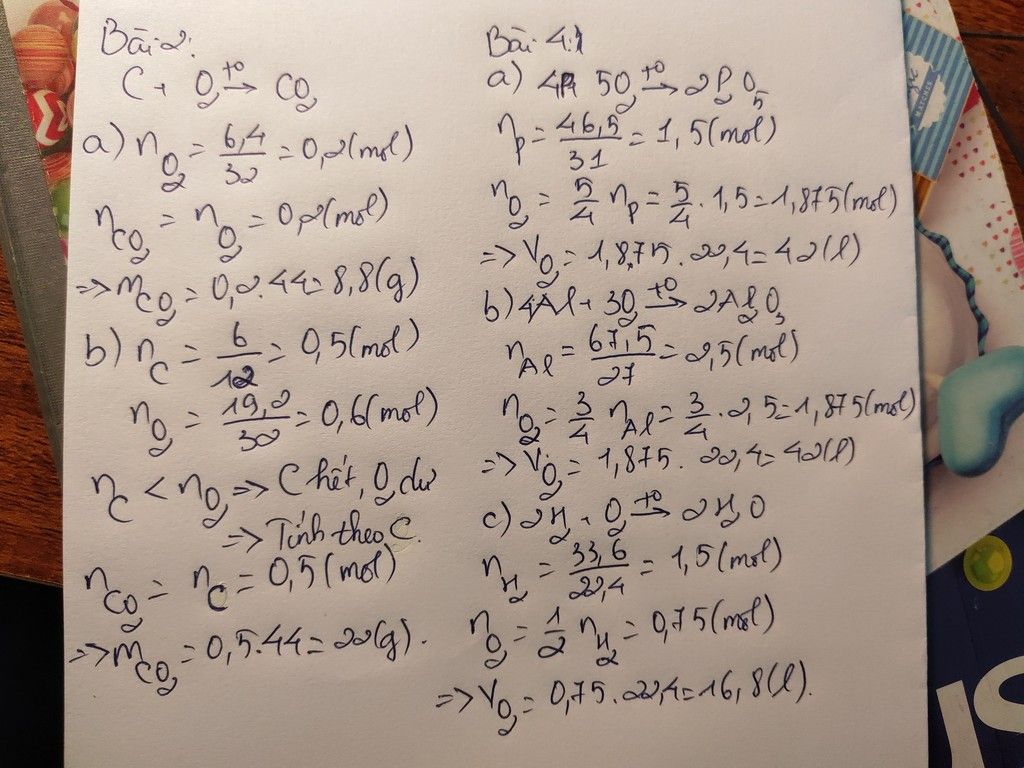 Bài 2:
C + O₂ →(t°) CO₂
a) n_O₂ = 6,4/32 = 0,2 (mol)
n_CO₂ = n_O₂ = 0,2 (mol)
=> m_CO₂ = 0,2.44 = 8,8 (g)
b) n_C = 6/12 = 0,5 (mol)
n_O₂ = 19,2/32 = 0,6 (mol)
n_C < n_O₂ => C hết, O₂ dư
=> Tính theo C.
n_CO₂ = n_C = 0,5 (mol)
=> m_CO₂ = 0,5.44 = 22 (g).
Bài 4:
a) 4P 5O₂ →(t°) 2P₂O₅
n_P = 46,5/31 = 1,5 (mol)
n_O₂ = 5/4 n_P = 5/4 . 1,5 = 1,875 (mol)
=> V_O₂ = 1,875 . 22,4 = 42 (l)
b) 4Al + 3O₂ →(t°) 2Al₂O₃
n_Al = 67,5/27 = 2,5 (mol)
n_O₂ = 3/4 n_Al = 3/4 . 2,5 = 1,875 (mol)
=> V_O₂ = 1,875 . 22,4 = 42 (l)
c) 2H₂ + O₂ →(t°) 2H₂O
n_H₂ = 33,6/22,4 = 1,5 (mol)
n_O₂ = 1/2 n_H₂ = 0,75 (mol)
=> V_O₂ = 0,75 . 22,4 = 16,8 (l).